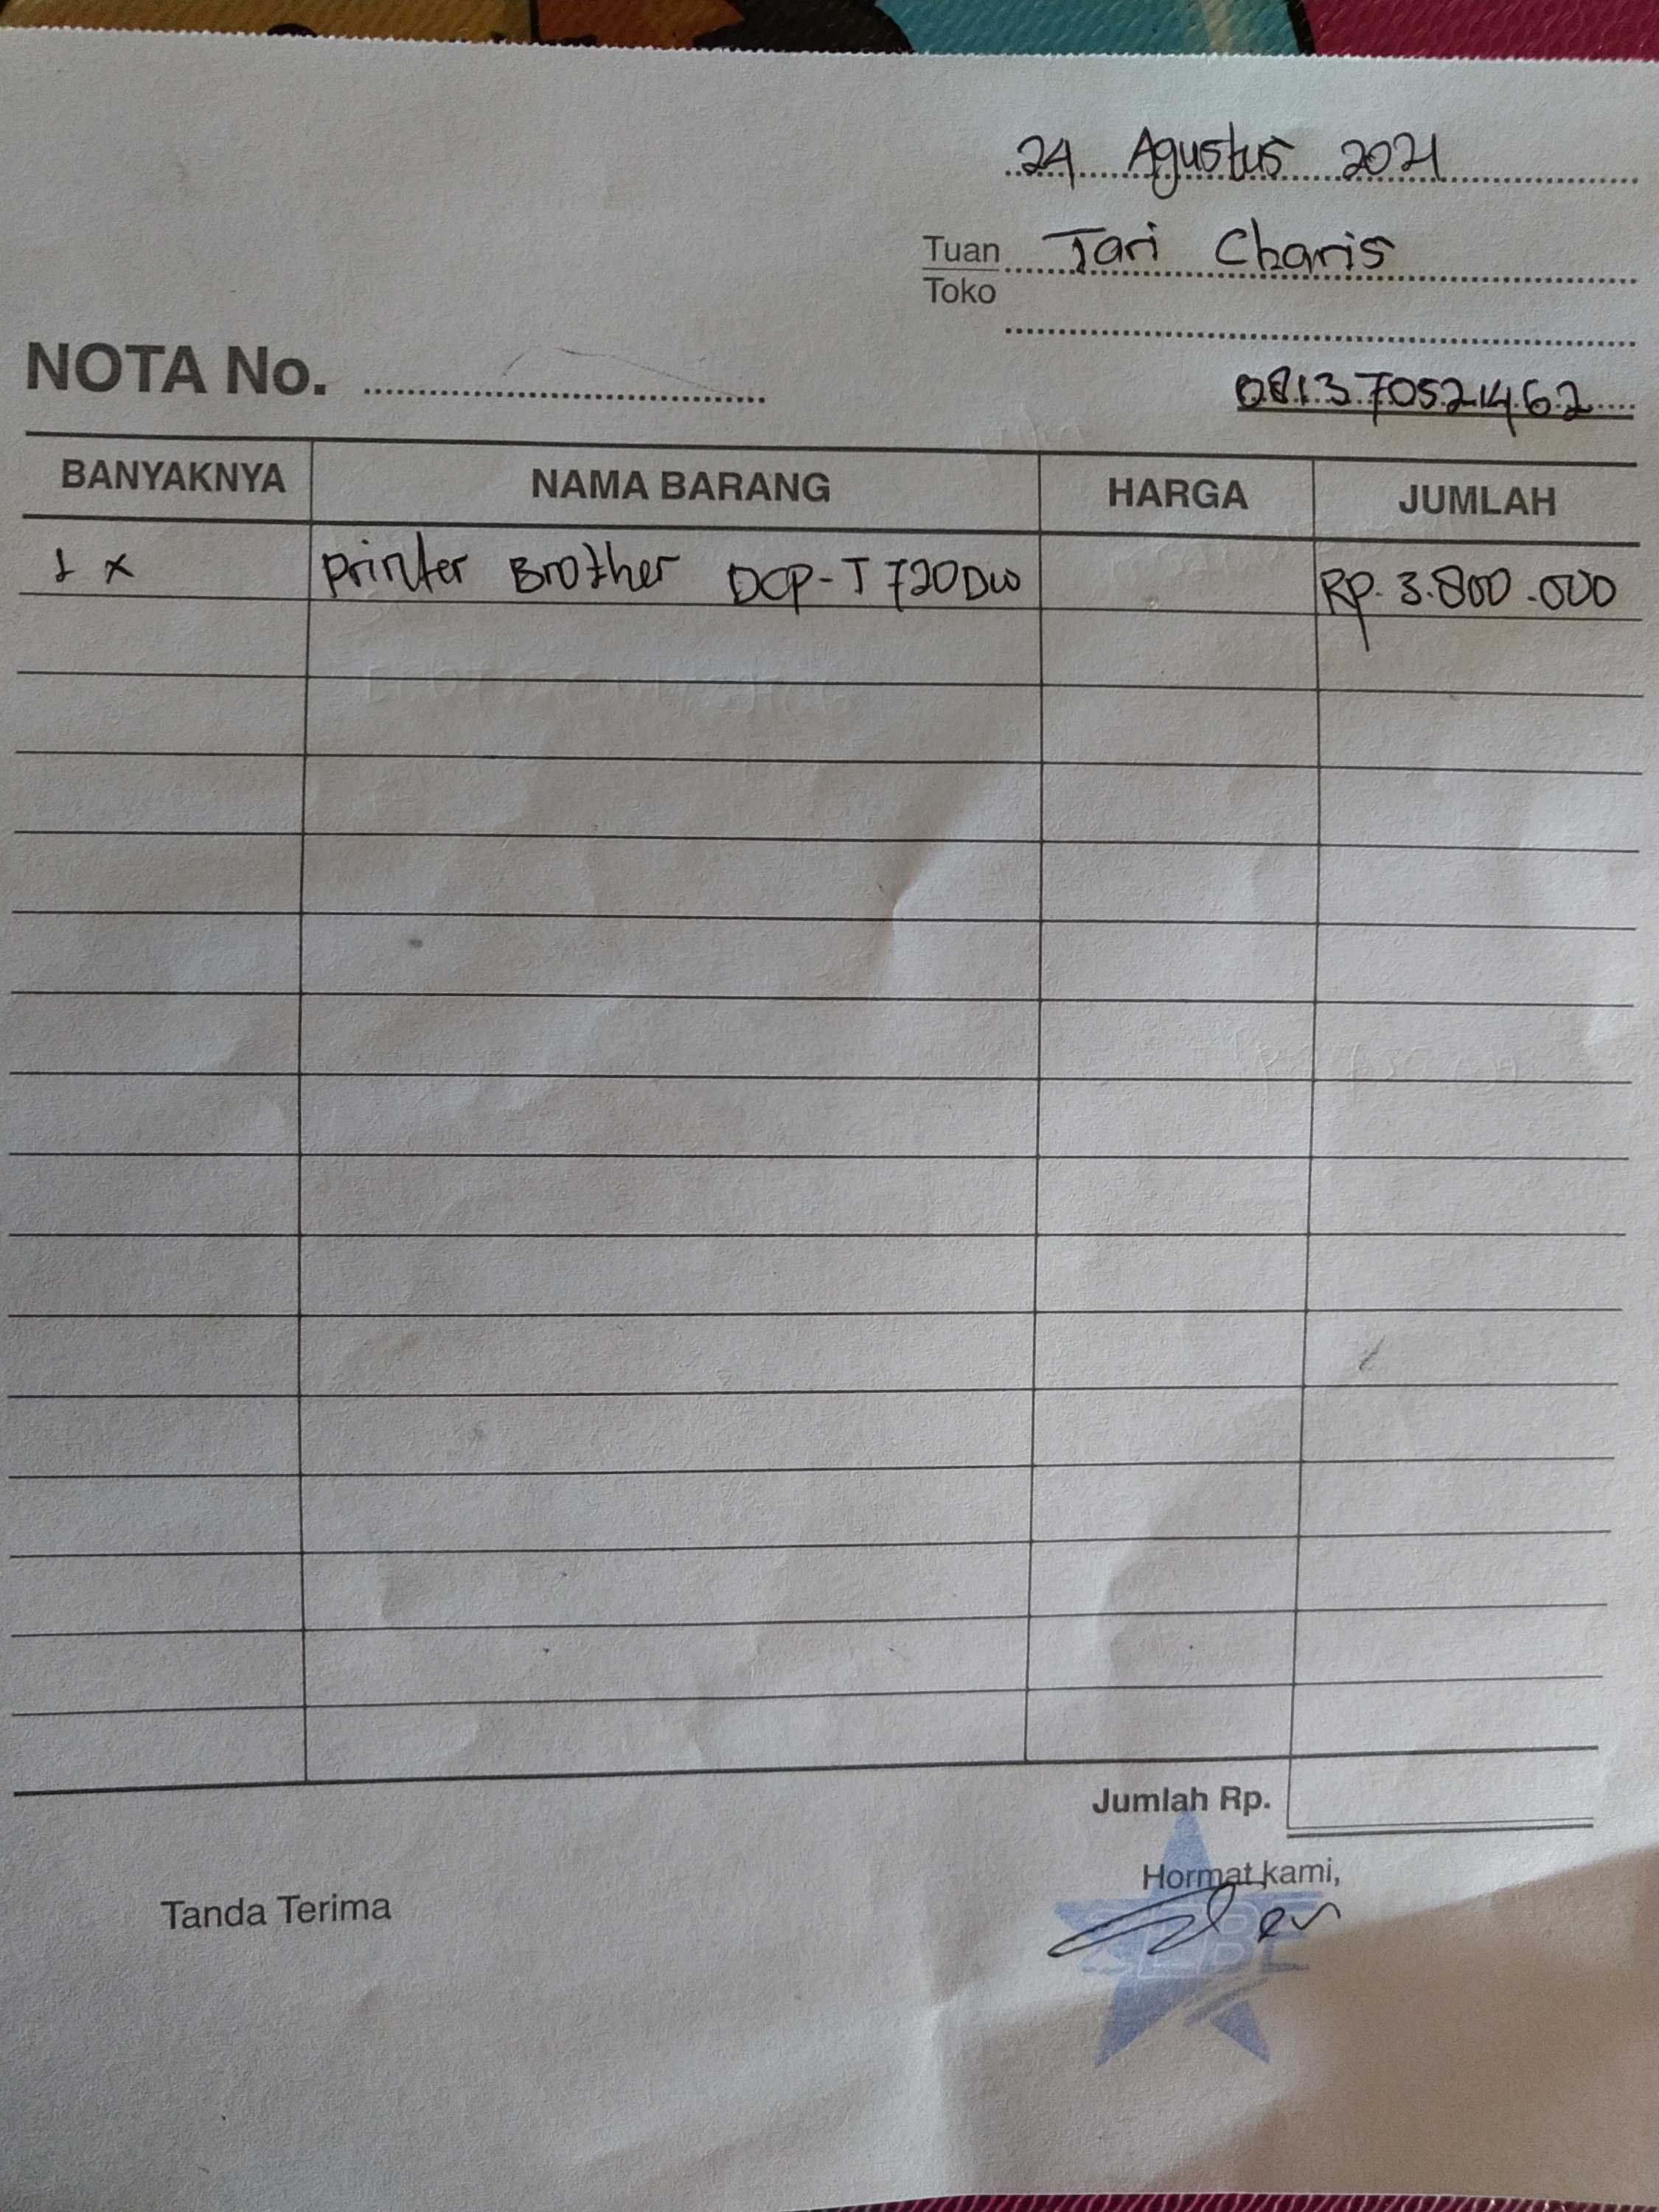 24 Agustus 2021
Tuan Tari Charis
Toko
NOTA No.
081370521462
BANYAKNYA NAMA BARANG HARGA JUMLAH
1 x Printer Brother DCP-T720DW Rp. 3.800.000
Jumlah Rp.
Hormat kami,
Tanda Terima